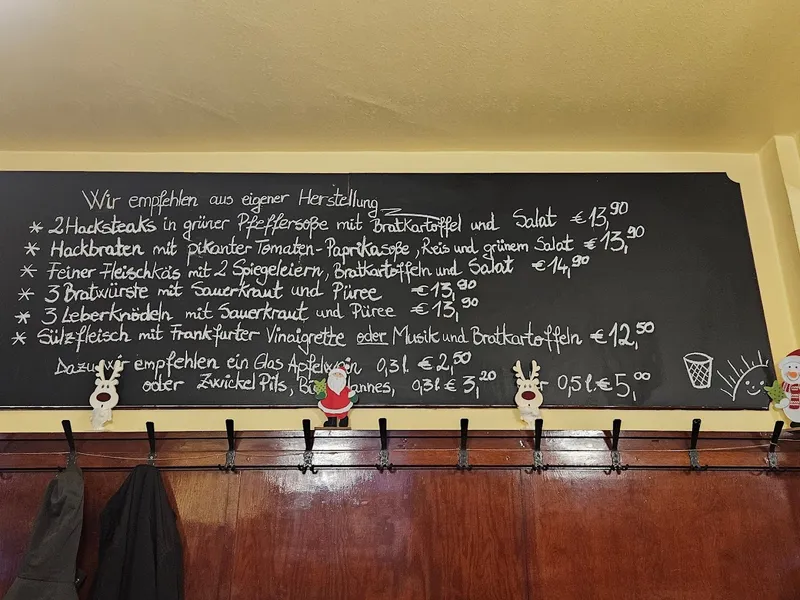 Wir empfehlen aus eigener Herstellung
* 2 Hacksteaks in grüner Pfeffersoße mit Bratkartoffel und Salat €13,90
* Hackbraten mit pikanter Tomaten-Paprikasoße, Reis und grünem Salat €13,90
* Feiner Fleischkäs mit 2 Spiegeleiern, Bratkartoffeln und Salat €14,90
* 3 Bratwürste mit Sauerkraut und Püree €13,90
* 3 Leberknödeln mit Sauerkraut und Püree €13,90
* Sülzfleisch mit Frankfurter Vinaigrette oder Musik und Bratkartoffeln €12,50
Dazu wir empfehlen ein Glas Apfelwein 0,3 l. €2,50
oder Zwickel Pils, 0,3 l. €3,20 0,5 l. €5,00